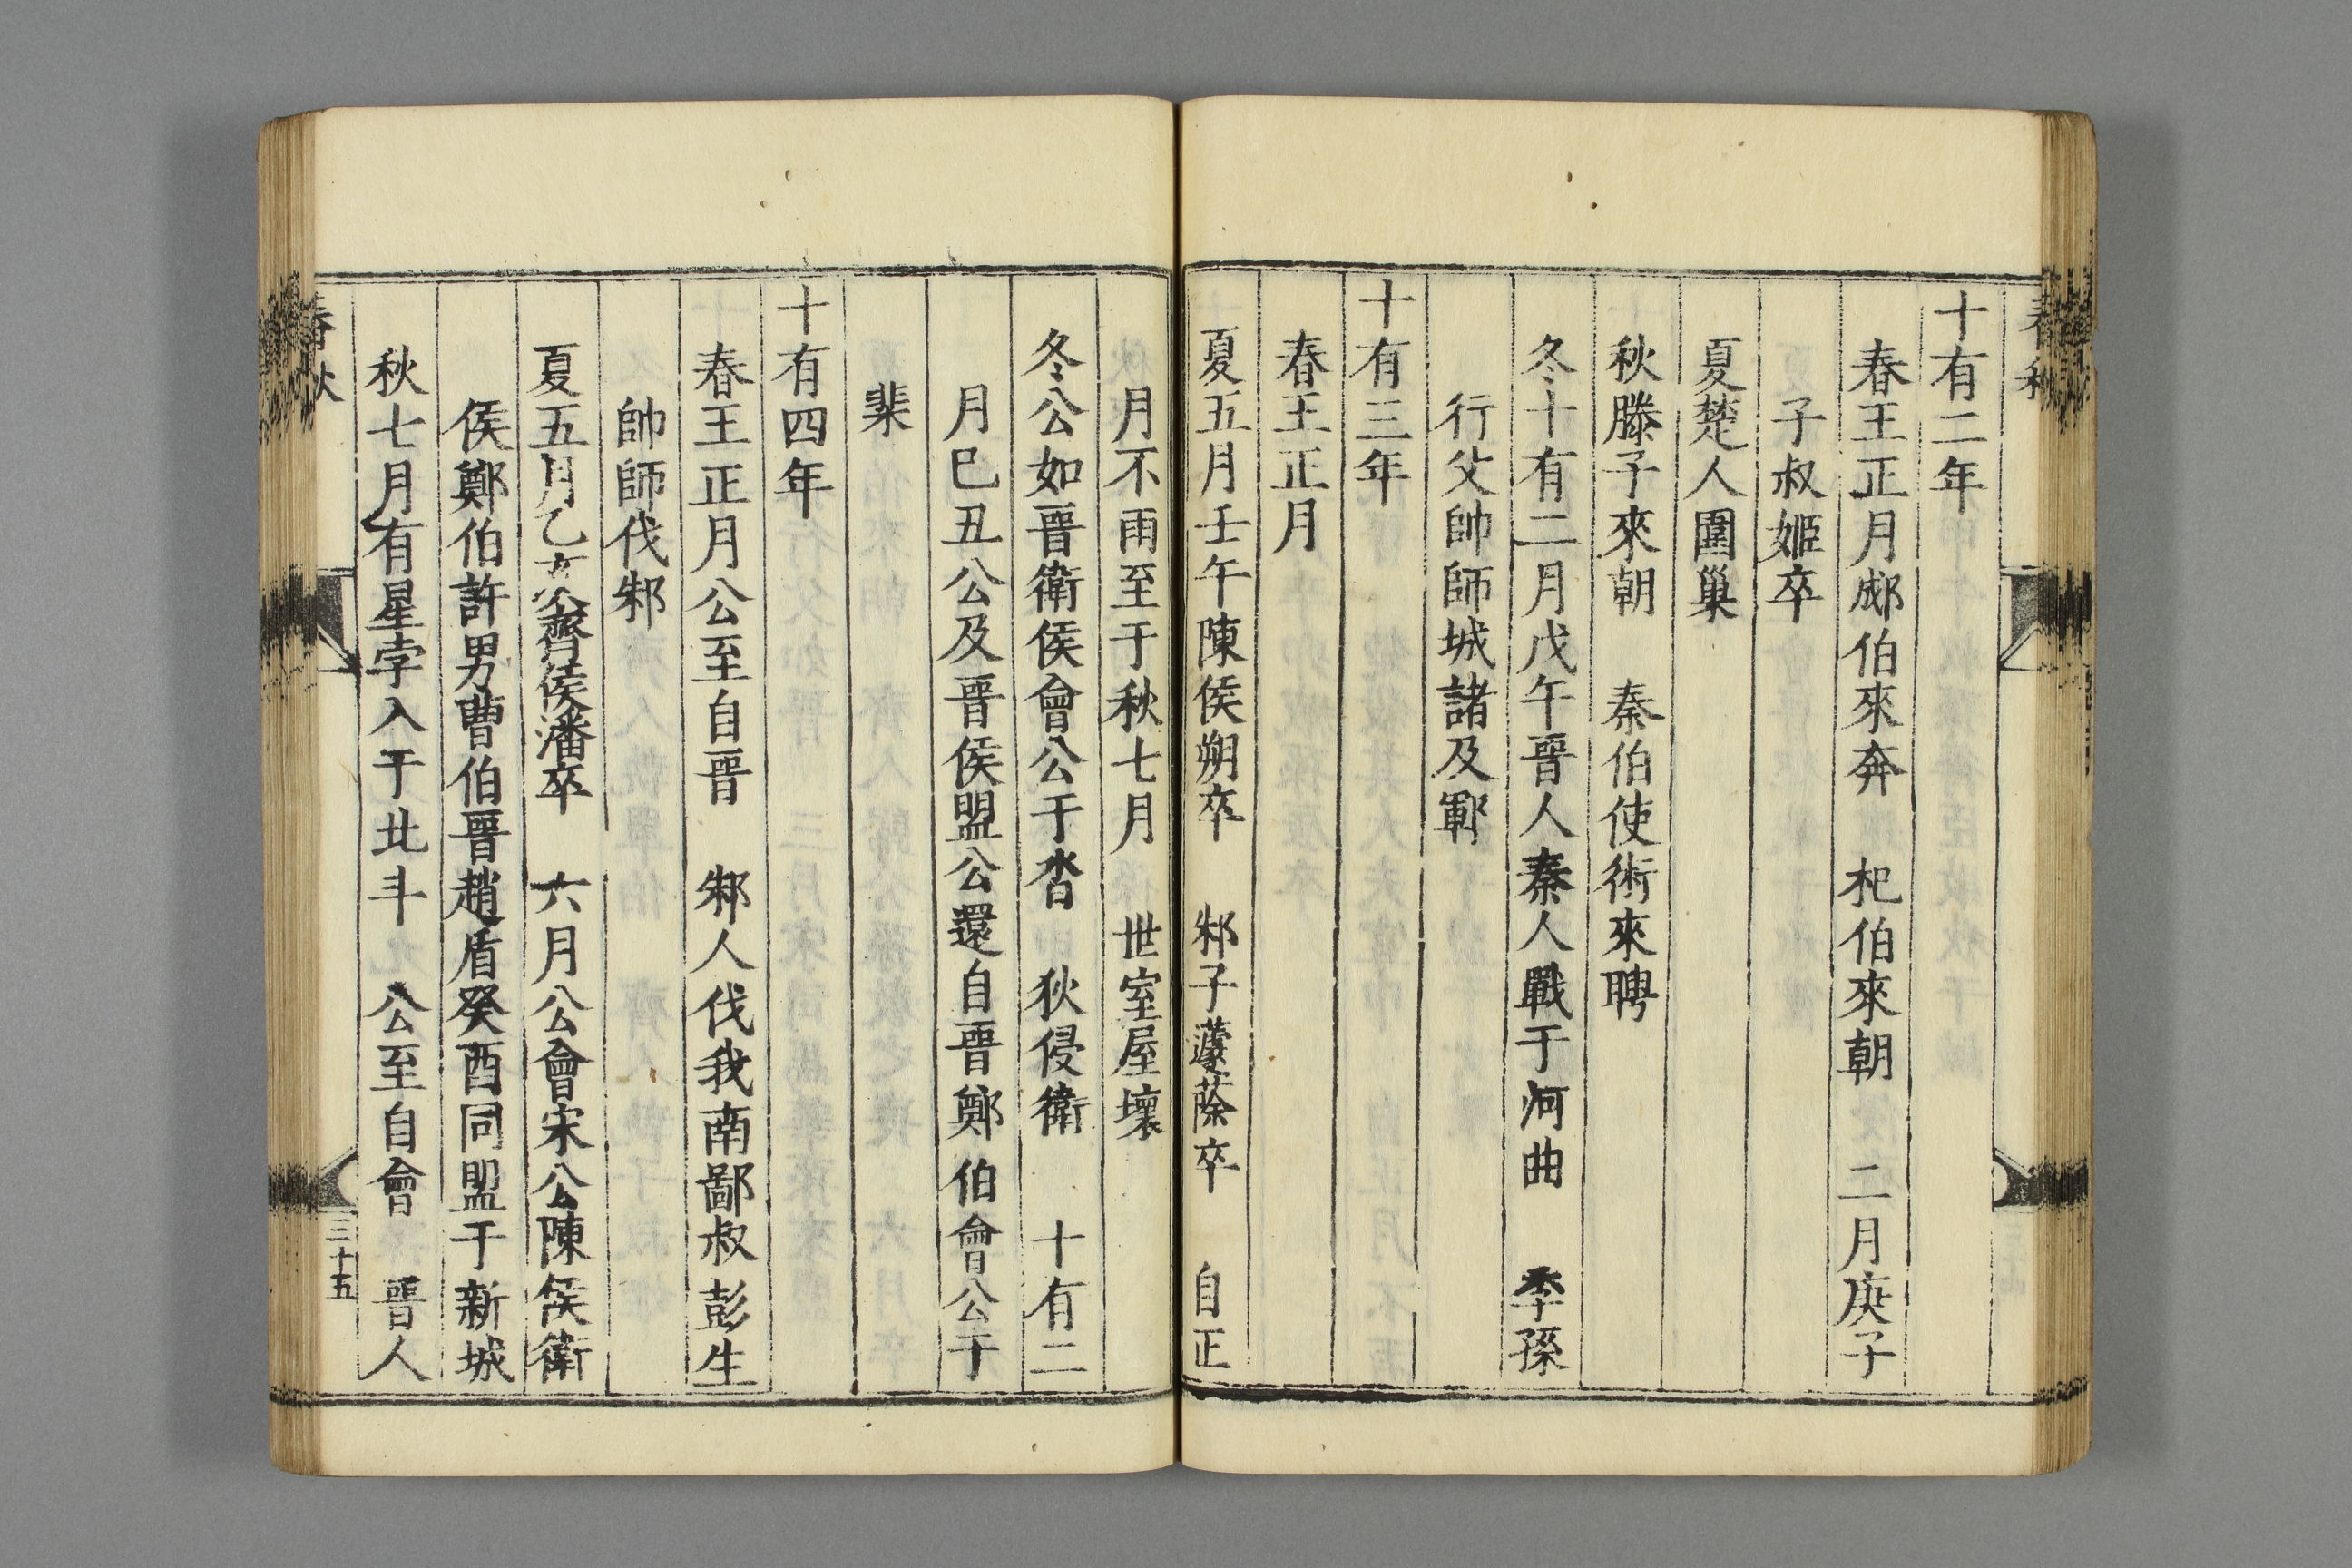 十有二年
春王正月郕伯來奔　杞伯來朝　二月庚子
子叔姬卒
夏楚人圍巢
秋滕子來朝　秦伯使術來聘
冬十有二月戊午晉人秦人戰于河曲　季孫
行父帥師城諸及鄆
十有三年
春王正月
夏五月壬午陳侯朔卒　邾子蘧蒢卒　自正
月不雨至于秋七月　世室屋壞
冬公如晉衛侯會公于沓　狄侵衛　十有二
月巳丑公及晉侯盟公還自晉鄭伯會公于
棐
十有四年
春王正月公至自晉　邾人伐我南鄙叔彭生
帥師伐邾
夏五月乙亥齊侯潘卒　六月公會宋公陳侯衛
侯鄭伯許男曹伯晉趙盾癸酉同盟于新城
秋七月有星孛入于北斗　公至自會　晉人
春秋
三十五